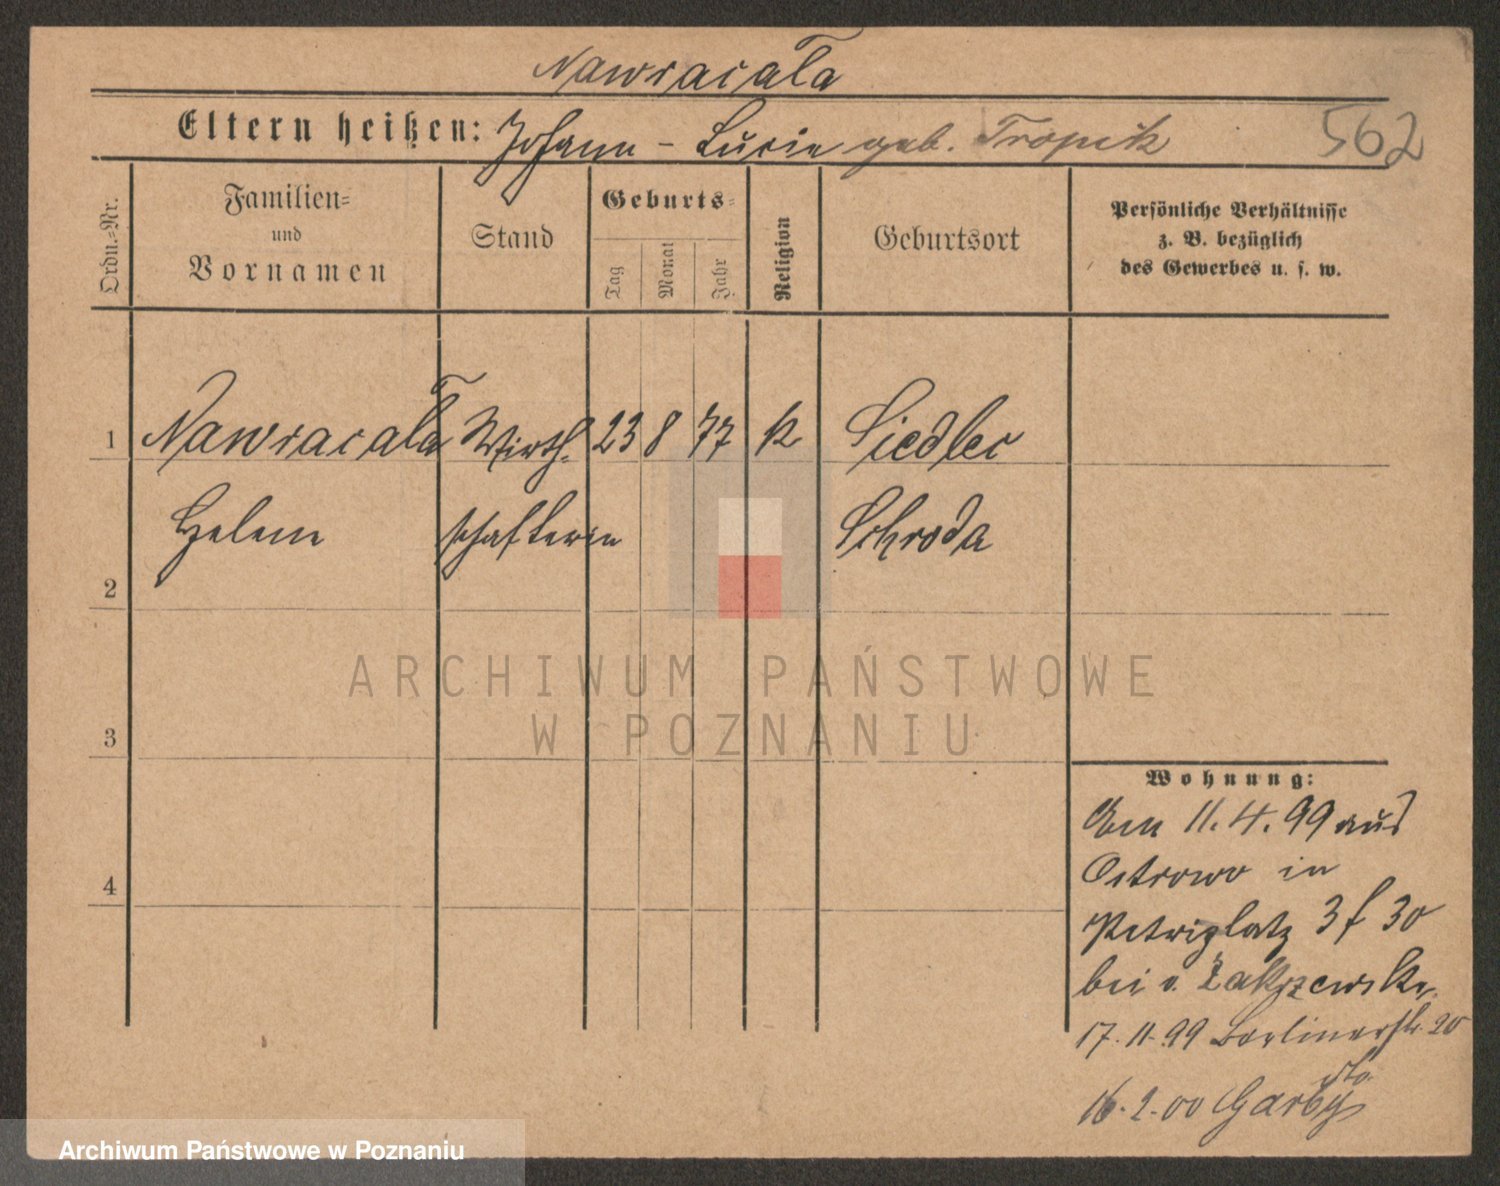 Nawracała
Eltern heißen: Johann - Lucie geb. Tropik
562
Ordn.-Nr.
Familien=
und
Vornamen
Stand
Geburts=
Tag
Monat
Jahr
Religion
Geburtsort
Persönliche Verhältnisse
z. B. bezüglich
des Gewerbes u. s. w.
1 Nawracała Wirth- 23 8 77 k Siedlec
Helene schafterin Schroda
2
3
4
Wohnung:
Am 11.4.99 aus
Ostrowo in
Petriplatz 3 f 30
bei v. Zakrzewski
17.11.99 Berlinerstr. 20
16.2.00 Garby
ARCHIWUM PAŃSTWOWE
W POZNANIU
Archiwum Państwowe w Poznaniu